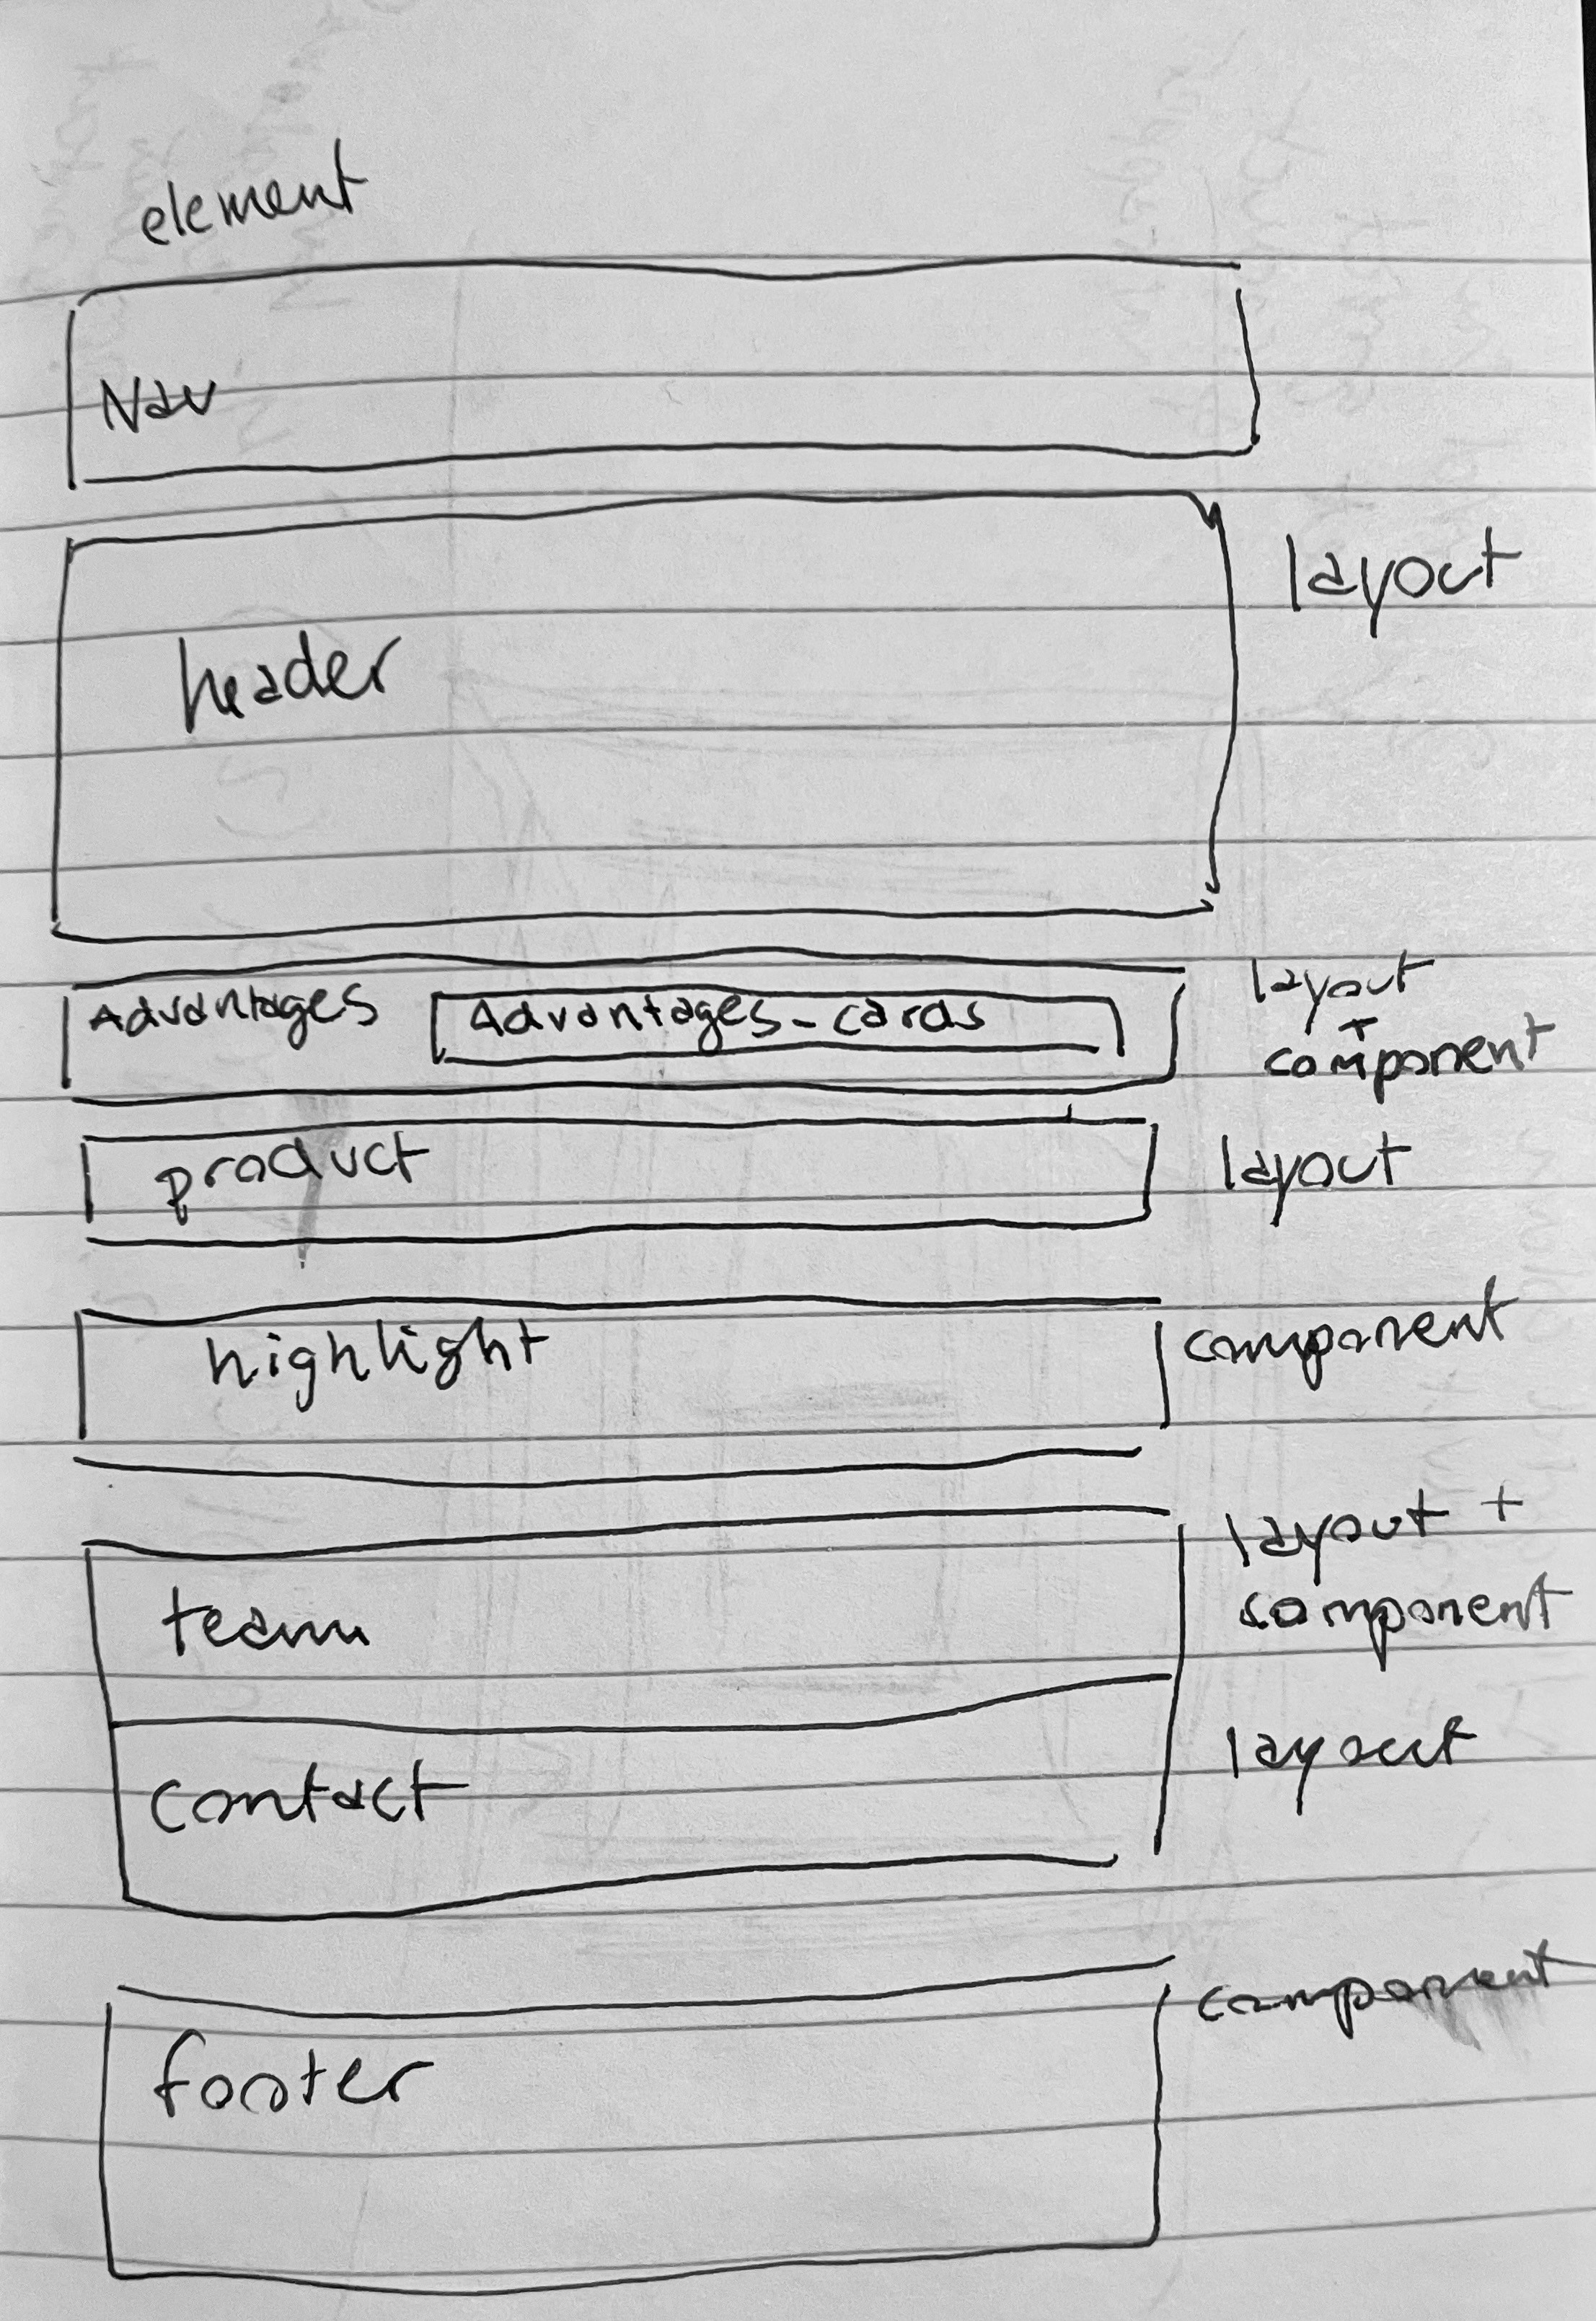 element
Nav
header
layout
Advantages
Advantages-cards
layout
+
component
product
layout
highlight
component
team
layout +
component
contact
layout
footer
component